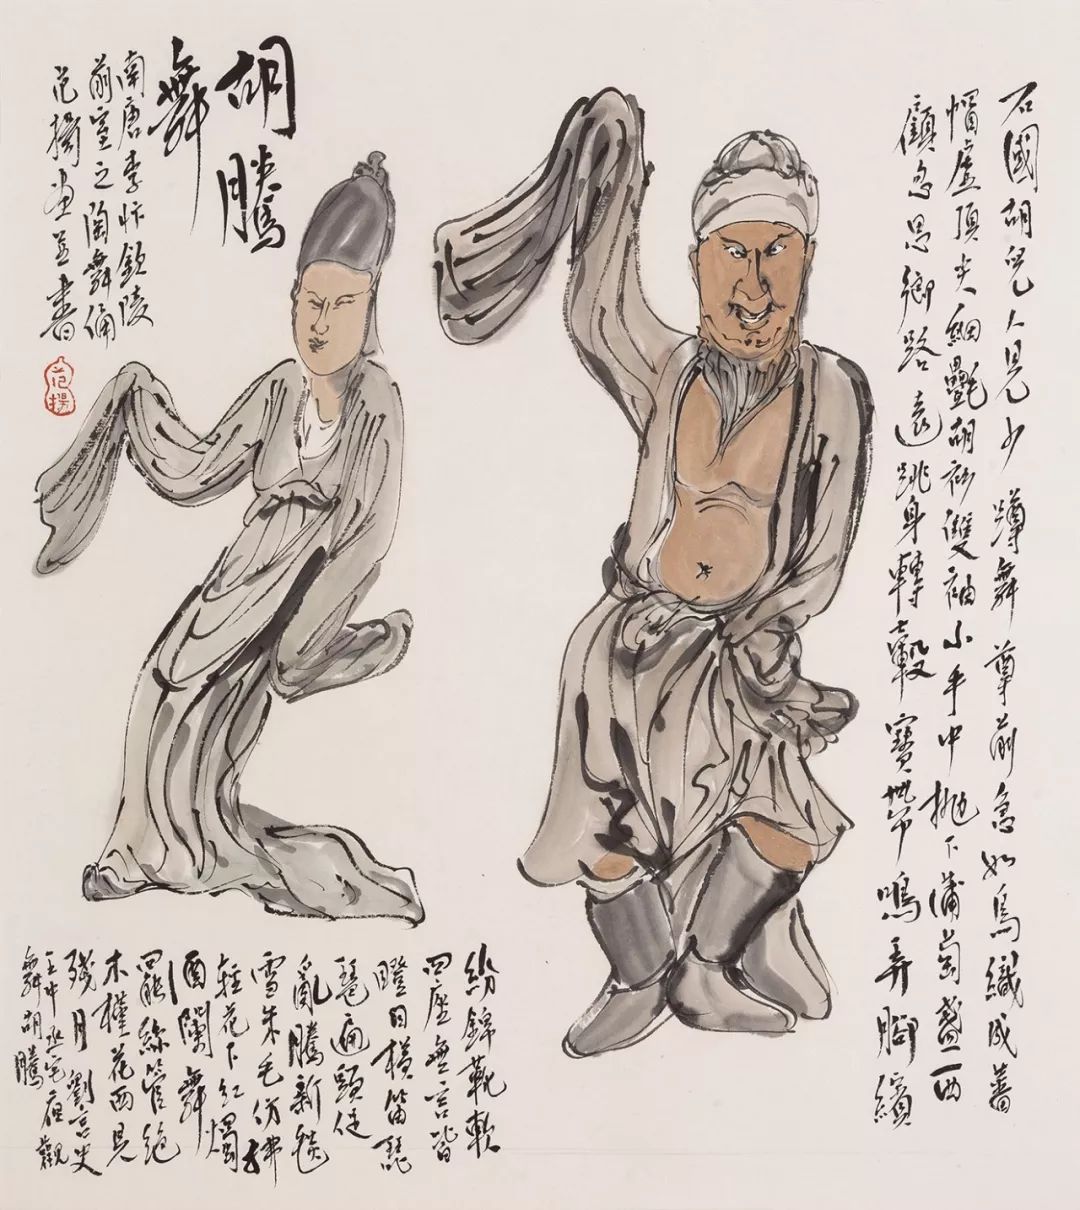 胡騰
舞
南唐李忭欽陵
前室之陶舞俑
范揚畫並書
范揚
石國胡兒人見少蹲舞尊前急如鳥織成蕃
帽虛頂尖細氎胡衫雙袖小手中拋下蒲萄盞西
顧忽思鄉路遠跳身轉轂寶帶鳴弄腳繽
紛錦靴軟
四座無言皆
瞪目橫笛琵
琶遍頭促
亂騰新毯
雪朱毛傍拂
輕花下紅燭
酒闌舞
罷絲管絕
木槿花西見
殘月劉言史
王中丞宅夜觀
舞胡騰